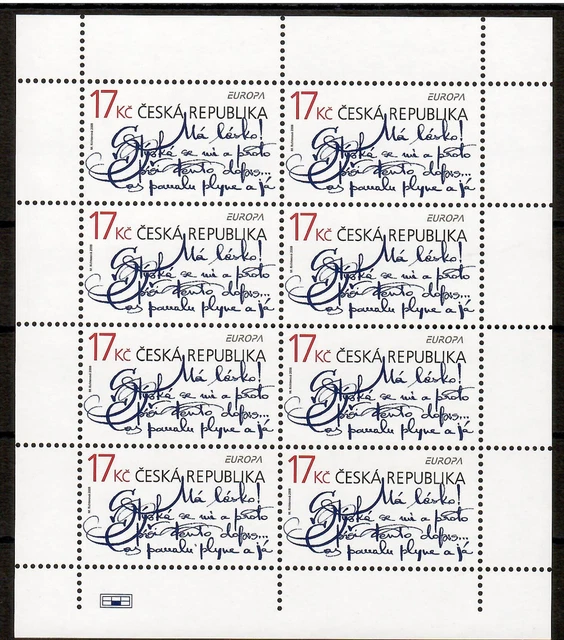 EUROPA
17 Kč ČESKÁ REPUBLIKA
Má lásko!
Stýská se mi a proto
píši tento dopis...
čas pomalu plyne a já
EUROPA
17 Kč ČESKÁ REPUBLIKA
Má lásko!
Stýská se mi a proto
píši tento dopis...
čas pomalu plyne a já
EUROPA
17 Kč ČESKÁ REPUBLIKA
Má lásko!
Stýská se mi a proto
píši tento dopis...
čas pomalu plyne a já
EUROPA
17 Kč ČESKÁ REPUBLIKA
Má lásko!
Stýská se mi a proto
píši tento dopis...
čas pomalu plyne a já
EUROPA
17 Kč ČESKÁ REPUBLIKA
Má lásko!
Stýská se mi a proto
píši tento dopis...
čas pomalu plyne a já
EUROPA
17 Kč ČESKÁ REPUBLIKA
Má lásko!
Stýská se mi a proto
píši tento dopis...
čas pomalu plyne a já
EUROPA
17 Kč ČESKÁ REPUBLIKA
Má lásko!
Stýská se mi a proto
píši tento dopis...
čas pomalu plyne a já
EUROPA
17 Kč ČESKÁ REPUBLIKA
Má lásko!
Stýská se mi a proto
píši tento dopis...
čas pomalu plyne a já